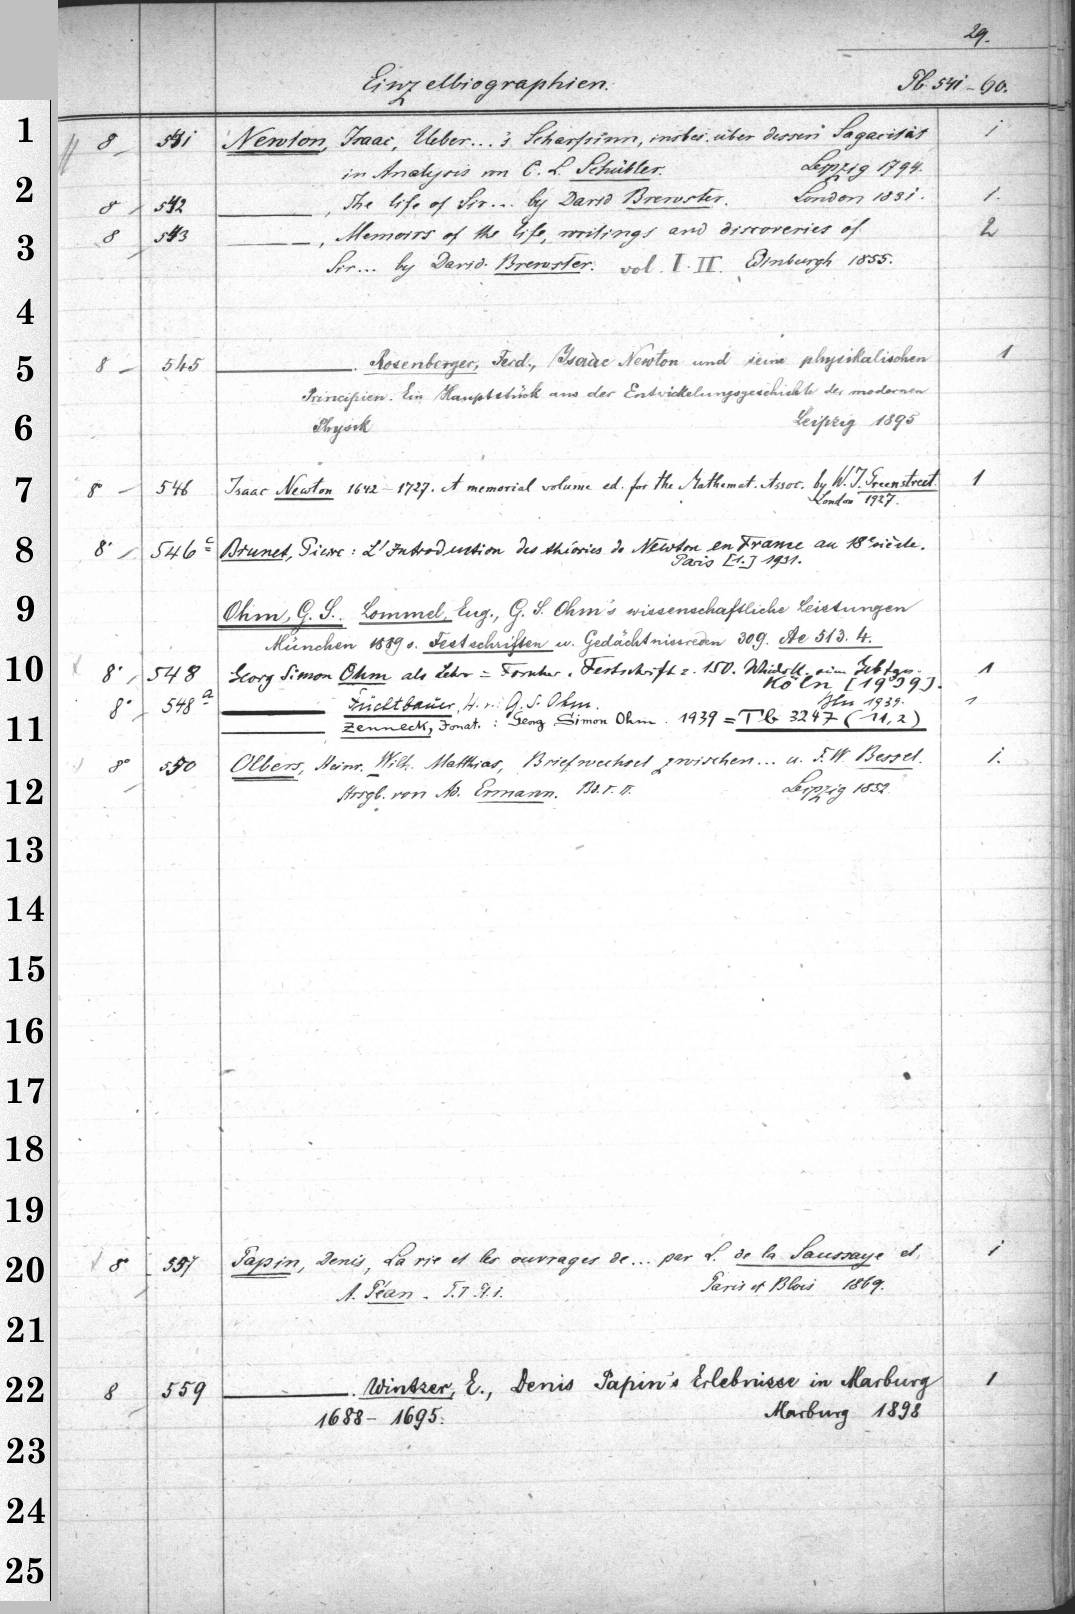 29.
Einzelbiographien. Tb. 541-60.
1
8 541 Newton, Isaac, Ueber...'s Scharfsinn, insbes. über dessen Sagacität 1
in Analysis von C. L. Schübler. Leipzig 1794.
2
8 542 ———, The life of Sir... by David Brewster. London 1831. 1.
3
8 543 ———, Memoirs of the life, writings and discoveries of 2
Sir... by David Brewster. vol. I. II. Edinburgh 1855.
4
5
8 545 ———. Rosenberger, Ferd., Isaac Newton und seine physikalischen 1
Principien. Ein Hauptstück aus der Entwickelungsgeschichte der modernen
6
Physik Leipzig 1895
7
8° 546 Isaac Newton 1642-1727. A memorial volume ed. for the Mathemat. Assoc. by W. J. Greenstreet. 1
London 1927.
8
8° 546 c Brunet, Pierre: L'Introduction des théories de Newton en France au 18e siècle.
Paris [1.] 1931.
9
Ohm, G. S.. Lommel, Eug., G. S. Ohm's wissenschaftliche Leistungen
München 1889 s. Festschriften u. Gedächtnissreden 309. Ae 513. 4.
10
8° 548 Georg Simon Ohm als Lehr = Forscher. Festschrift z. 150. 1
Köln [1939].
8° 548 a ——— Füchtbauer, H. v.: G. S. Ohm. Bln 1939. 1
11
——— Zenneck, Jonat.: Georg Simon Ohm. 1939 = Tb 3247 (11,2)
8° 550 Olbers, Heinr. Wilh. Matthias, Briefwechsel zwischen... u. F. W. Bessel. 1.
12
Hrsgb. von Ad. Ermann. Bd. I. II. Leipzig 1852.
13
14
15
16
17
18
19
20
8° 557 Papin, Denis, La vie et les ouvrages de... par L. de la Saussaye et 1
A. Péan. T. I. Paris et Blois 1869.
21
22
8 559 ———. Wintzer, E., Denis Papin's Erlebnisse in Marburg 1
1688-1695. Marburg 1898
23
24
25